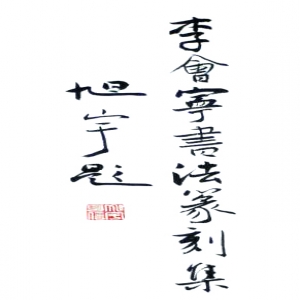 李會寧書法篆刻集
旭宇題